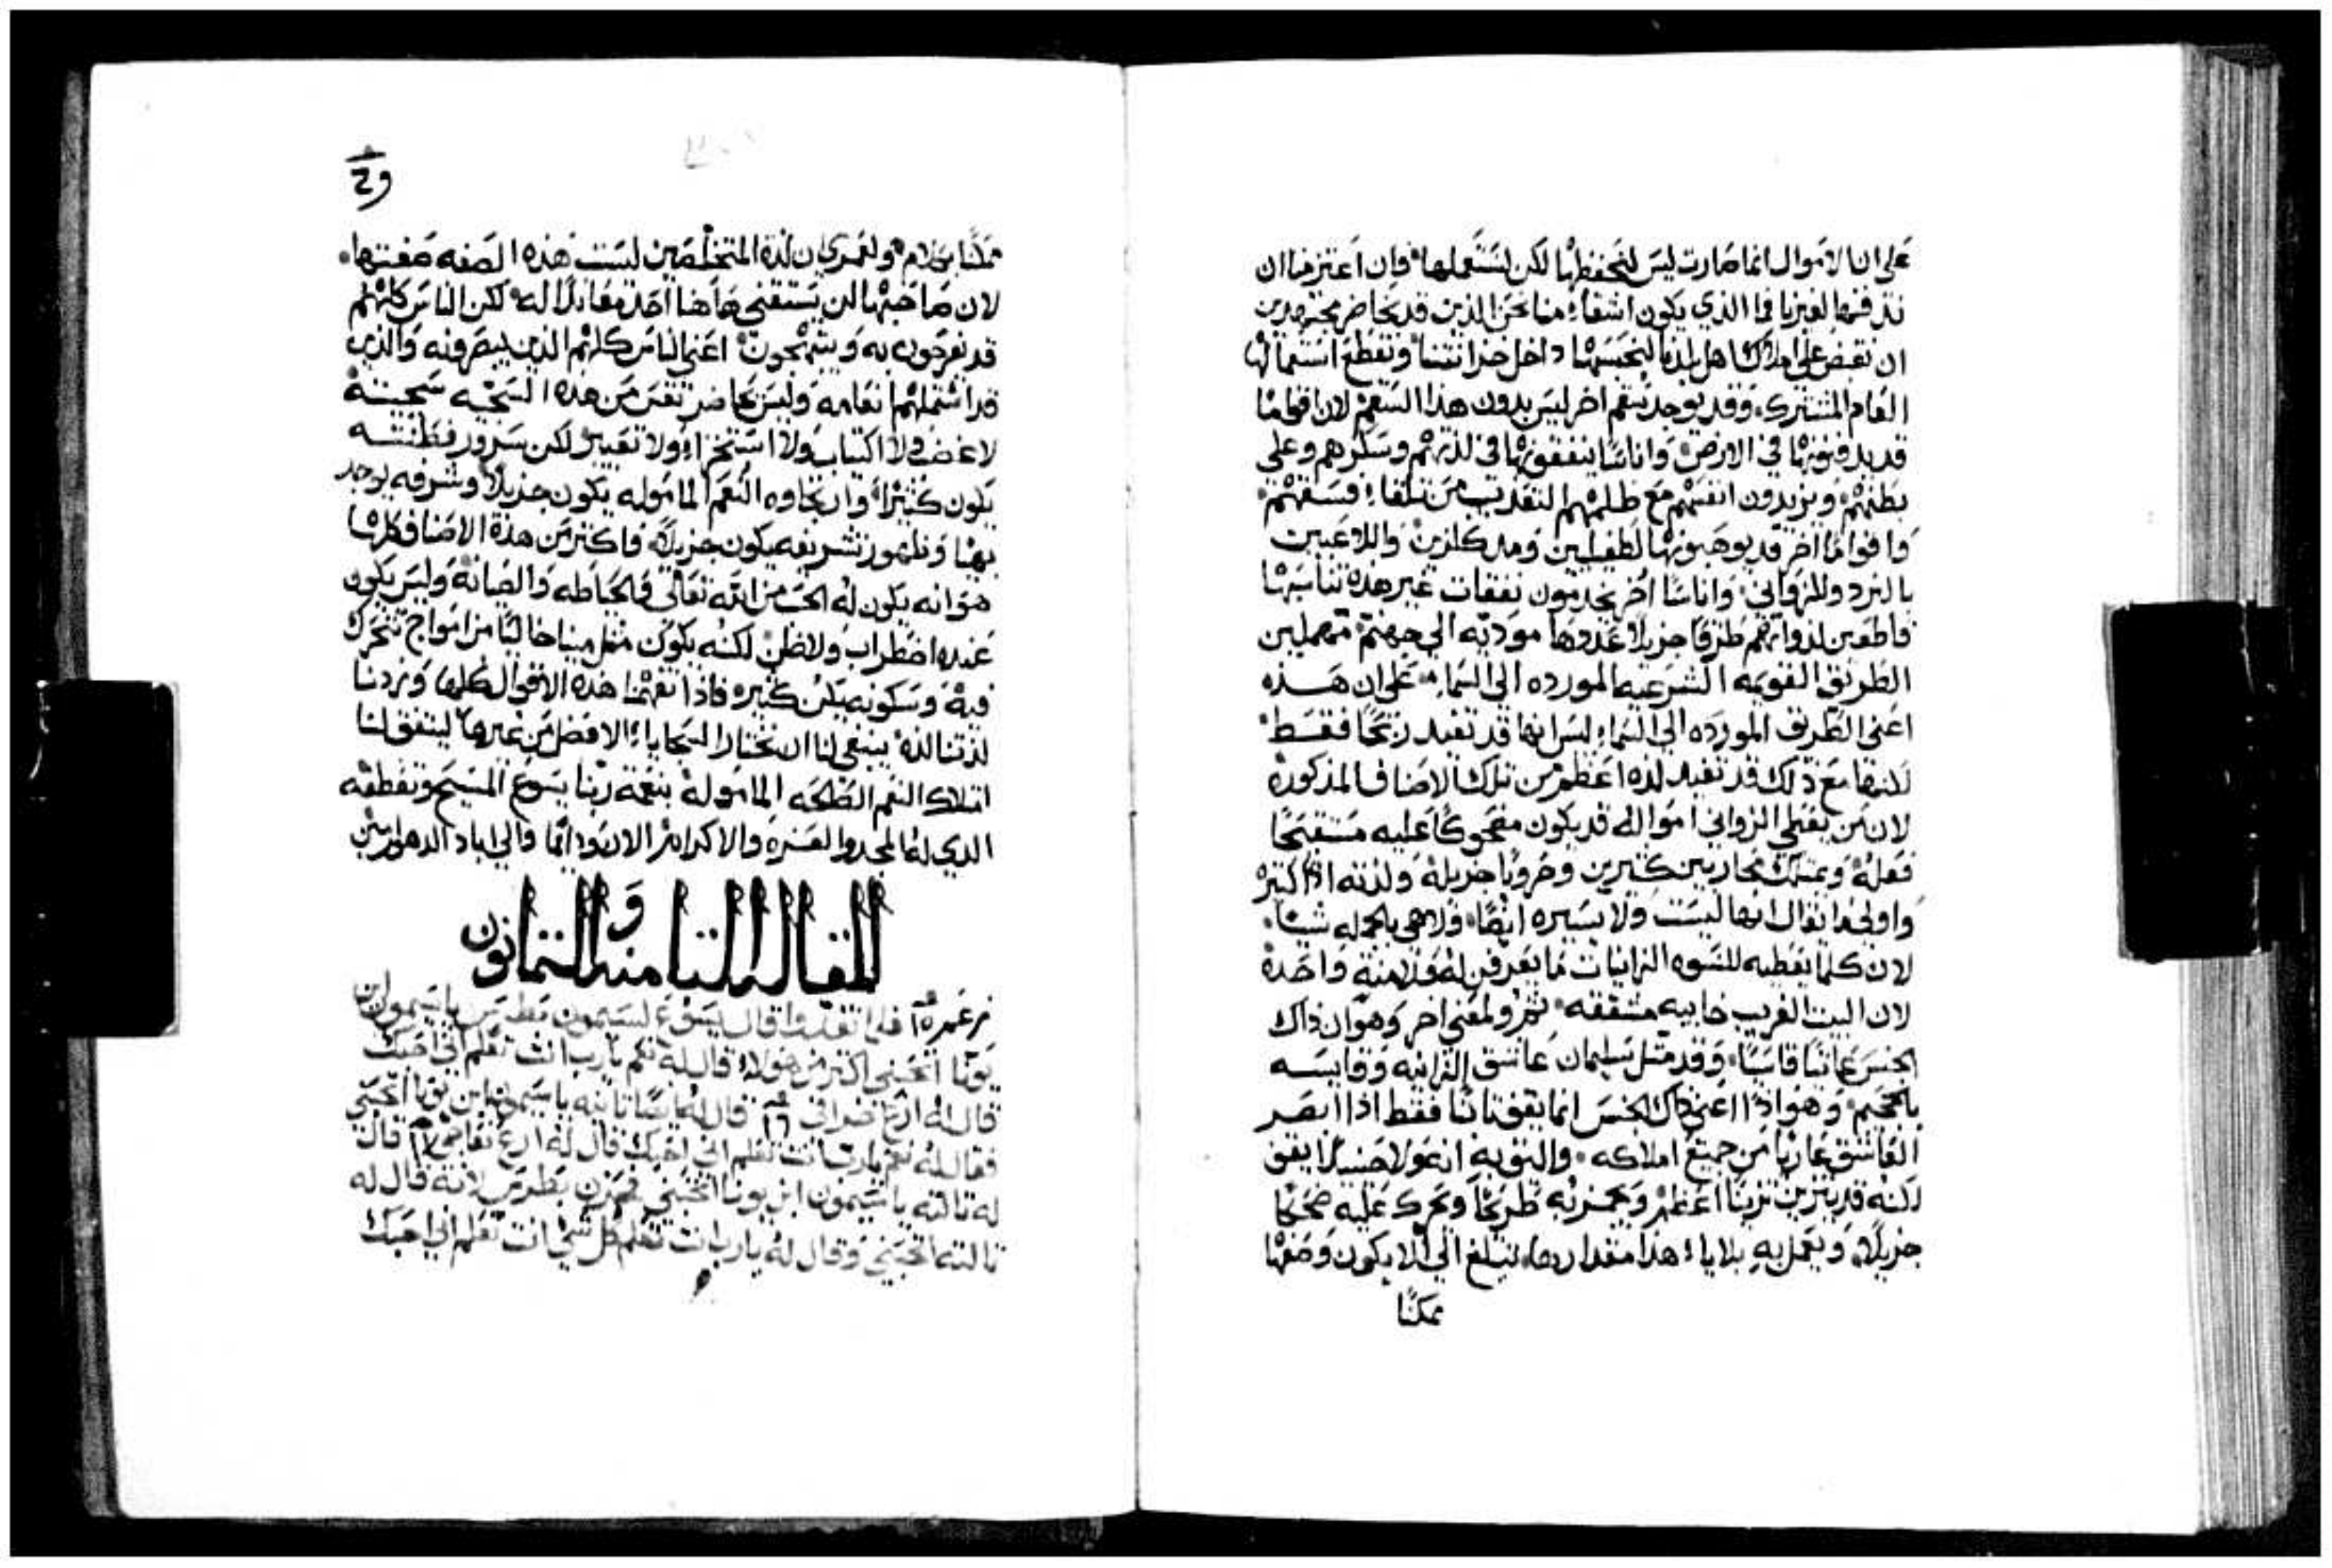 على ان الاموال انما صارت ليس لنحفظها لكن لنستعملها فان اعتزمنا ان
ندفنها لغيرنا فما الذي يكون اشقا منا نحن الذين قد نخاضر مجتهدين
ان نقبض على املاك اهل لدنا لنحبسها داخل خزانتنا ونقطع استعمالها
العام المشترك وقد يوجد سقم اخر ليس بدون هذا السقم لان اقواما
قد يدفنونها في الارض واناسا ينفقونها في لذتهم وسكرهم وعلى
بطنهم ويزيدون انفسهم مع ظلمهم التعذيب من تلقاء فسقهم
واقواما اخر قد يوهبونها لطفيليين وملكلزين واللاعبين
بالنرد وللزواني واناسا اخر يخدمون نفقات غير هذه تناسبها
قاطعين لذواتهم طرقا جزيلا عددها موديه الى جهنم مهملين
الطريق القويمه الشرعيه المورده الى السماء على ان هذه
اعني الطريق المورده الى السماء ليس انها قد تفيد ربحا فقط
لكنها مع ذلك قد تفيد لذه اعظم من تلك الاصناف المذكوره
لان من يعطي الزواني امواله قد يكون مضحوكا عليه مستقبحا
فعله ويمتلك محاربين كثيرين وحروبا جزيله ولذته اذا كثيره
واولى ما يقال انها ليست ولا يسيره ايضا ولا هي بالجمله شيئا
لان كلما يعطيه للنسوه الزانيات ما يعرفن له ولا منة واحدة
لان البيت الغريب خابيه مشققه ثم ولمعنى اخر وهو ان ذاك
الجنس عاتيا قاسيا وقد مثل سليمان عاشق الزانيه وقايسه
بالجحيم وهو اذا اعني ذاك الجنس انما يقف ثابتا فقط اذا ابصر
العاشق عاريا من جميع املاكه واليق به انه ولا حينيذ يقف
لكنه قد يتزين تزينا اعظم ويجعزنه طريحا ويحرك عليه ضحكا
جزيلا ويعمل به بلايا هذا مقدارها لتبلغ الى الا يكون وصفها
ممكنا
ممكنا بكلام ولعمري ان لذة المتخلصين ليست هذه الصفه صفتها
لان صاحبها لن يستقني هاهنا احدا مقابلا له لكن الناس كلهم
قد يفرحون به ويبتهجون اعني الناس كلهم الذين يبصرونه والذين
قد اشتملهم انعامه وليس يخاضر نفس من هذه السجيه سجيته
لا غضب ولا اكتياب ولا استخزاء ولا تعيير لكن سرور فطنته
يكون كثيرا وارتجاوه النعم المامولة يكون جزيلا وشرفه يوجد
بهيا وظهور تشريفه يكون جزيلا فاكثر من هذه الاصناف كلها
هو انه يكون له الحب من الله تعالى والحياطه والصيانه وليس يكون
عنده اضطراب ولا ظن لكنه يكون مثل مينا خاليا من امواج تتحرك
فيه وسكونه يكن كثيره فاذا تفهمنا هذه الاقوال كلها وزدنا
لذتنا لذه ينبغي لنا ان نختار السجايا الافضل من غيرها ليتفق لنا
امتلاك النعم الصالحه المامولة بنعمة ربنا يسوع المسيح وتعطفه
الذي له المجد والعزه والاكرام الان ودايما والى اباد الدهور امين
المقاله الثامنه و الثمانون
فلما تغدوا قال يسوع لسيمون بطرس يا سيمون ابن
يونا اتحبني اكثر من هولا قال له نعم يارب انت تعلم اني احبك
قال له ارع خرافي ١٦ قال له ايضا ثانيه يا سيمون ابن يونا اتحبني
فقال له نعم يارب انت تعلم اني احبك قال له ارع نعاجي ١٧ قال
له ثالثه يا سيمون ابن يونا اتحبني فحزن بطرس لانه قال له
ثالثه اتحبني وقال له يارب انت تعلم كل شي انت تعلم اني احبك